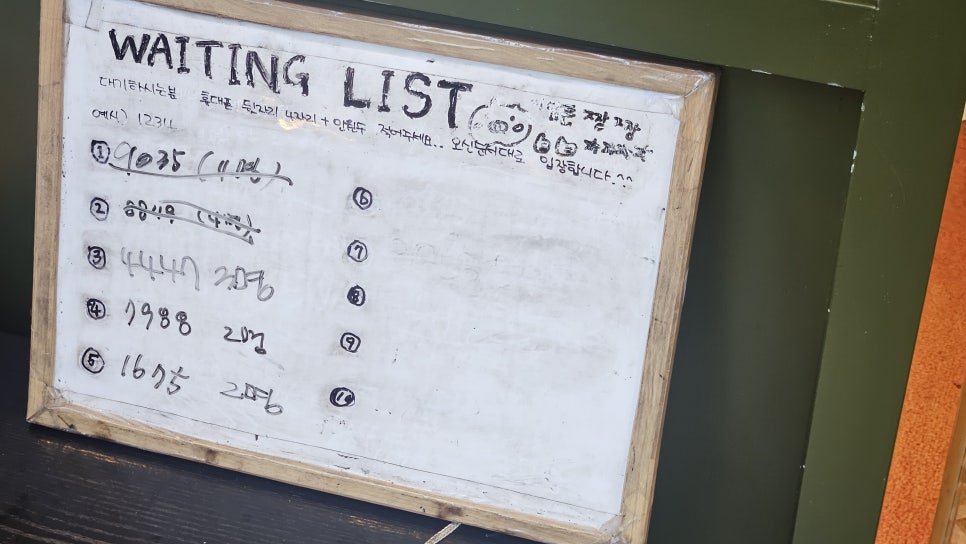 WAITING LIST
대기하시는분 휴대폰 뒷자리 4자리 + 인원수 적어주세요.. 오신순서대로 입장합니다.^^
예시) 1234
① 9035 (4명)
②
③ 4447 2명
④ 7988 2명
⑤ 1675 2명
⑥
⑦
⑧
⑨
⑩